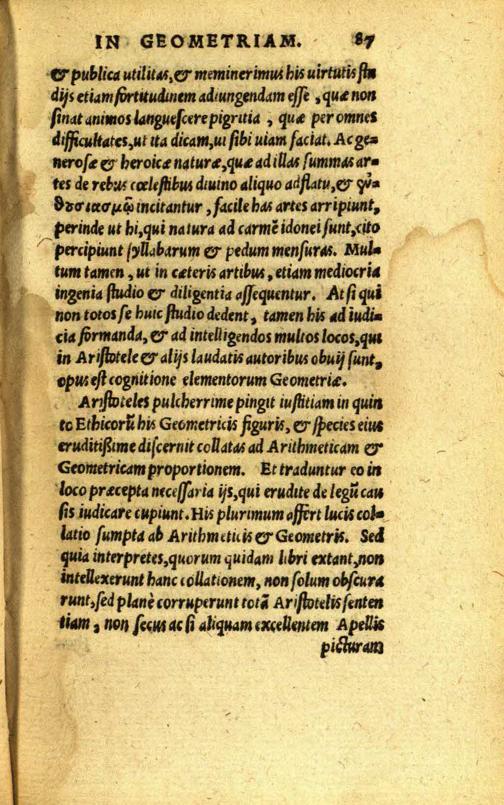 IN GEOMETRIAM. 87
& publica utilitas, & meminerimus his uirtutis stu
dijs etiam fortitudinem adiungendam esse, quæ non
sinat animos languescere pigritia, quæ per omnes
difficultates, ut ita dicam, ui sibi uiam faciat. Ac ge=
nerosæ & heroicæ naturæ, quæ ad illas summas ar=
tes de rebus cœlestibus diuino aliquo adflatu, & ἐν=
θουσιασμῷ incitantur, facile has artes arripiunt,
perinde ut hi, qui natura ad carmē idonei sunt, cito
percipiunt syllabarum & pedum mensuras. Mul=
tum tamen, ut in cæteris artibus, etiam mediocria
ingenia studio & diligentia assequentur. At si qui
non totos se huic studio dedent, tamen his ad iudi=
cia formanda, & ad intelligendos multos locos, qui
in Aristotele & alijs laudatis autoribus obuij sunt,
opus est cognitione elementorum Geometriæ.
Aristoteles pulcherrime pingit iustitiam in quin
to Ethicorū his Geometricis figuris, & species eius
eruditißime discernit collatas ad Arithmeticam &
Geometricam proportionem. Et traduntur eo in
loco præcepta necessaria ijs, qui erudite de legū cau
sis iudicare cupiunt. His plurimum affert lucis col=
latio sumpta ab Arithmeticis & Geometris. Sed
quia interpretes, quorum quidam libri extant, non
intellexerunt hanc collationem, non solum obscura
runt, sed planè corruperunt totā Aristotelis senten
tiam, non secus ac si aliquam excellentem Apellis
picturam